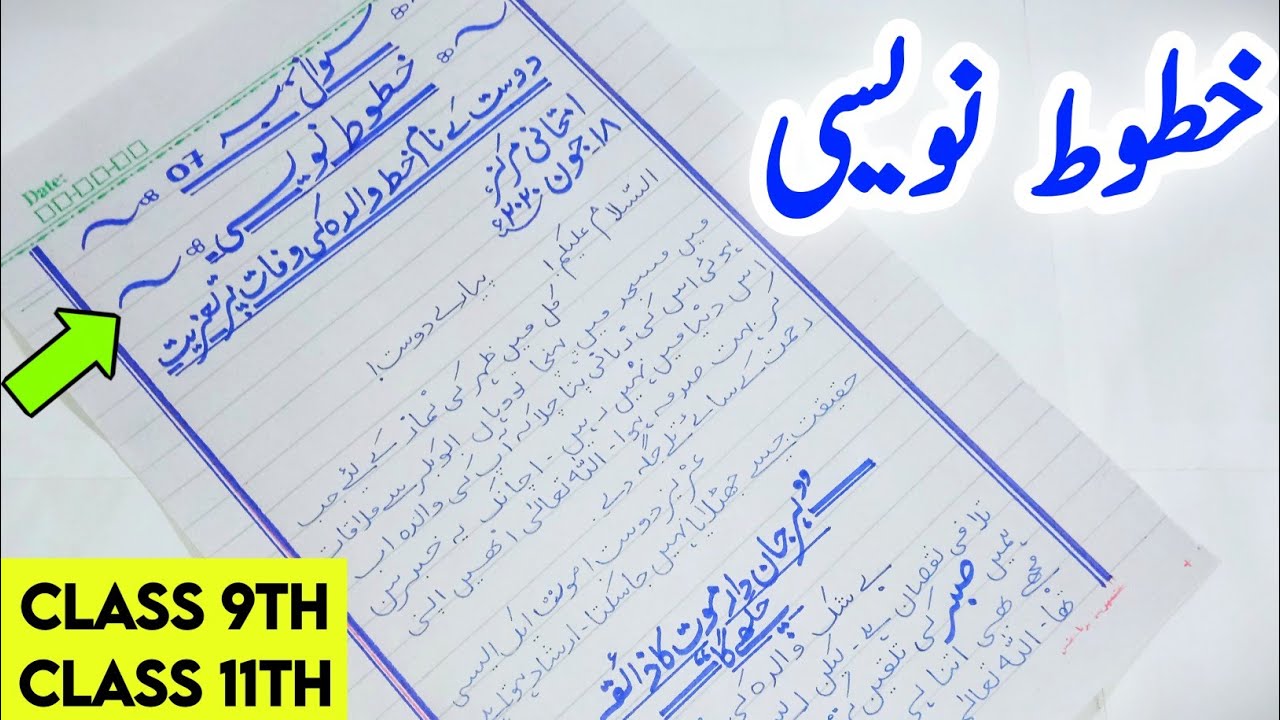 خطوط نویسی
Date:
سوال نمبر 07
خطوط نویسی
دوست کے نام خط والدہ کی وفات پر تعزیت
امتحانی مرکز
۱۸۔جون ۲۰۲۰ء
السّلام علیکم!
پیارے دوست!
کل میں ظہر کی نماز کے لئے جب
میں مسجد میں پہنچا تو وہاں ابوبکر سے ملاقات
ہوئی اس کی زبانی پتا چلا کہ آپ کی والدہ اب
اس دنیا میں نہیں رہیں۔ اچانک یہ خبر سن
کر بہت صدمہ ہوا۔ اللہ تعالیٰ انھیں اپنی
رحمت کے سائے تلے جگہ دے۔
عزیز دوست! موت ایک ایسی
حقیقت جسے جھٹلایا نہیں جا سکتا۔ ارشاد ہوتا ہے
"ہر جان دار موت کا ذائقہ
چکھے گا"
بے شک والدہ کی
تلافی نقصان ہے۔ لیکن
ہمیں صبر کی تلقین کی
مجھے بھی اتنا ہی
تھا۔ اللہ تعالیٰ
CLASS 9TH
CLASS 11TH